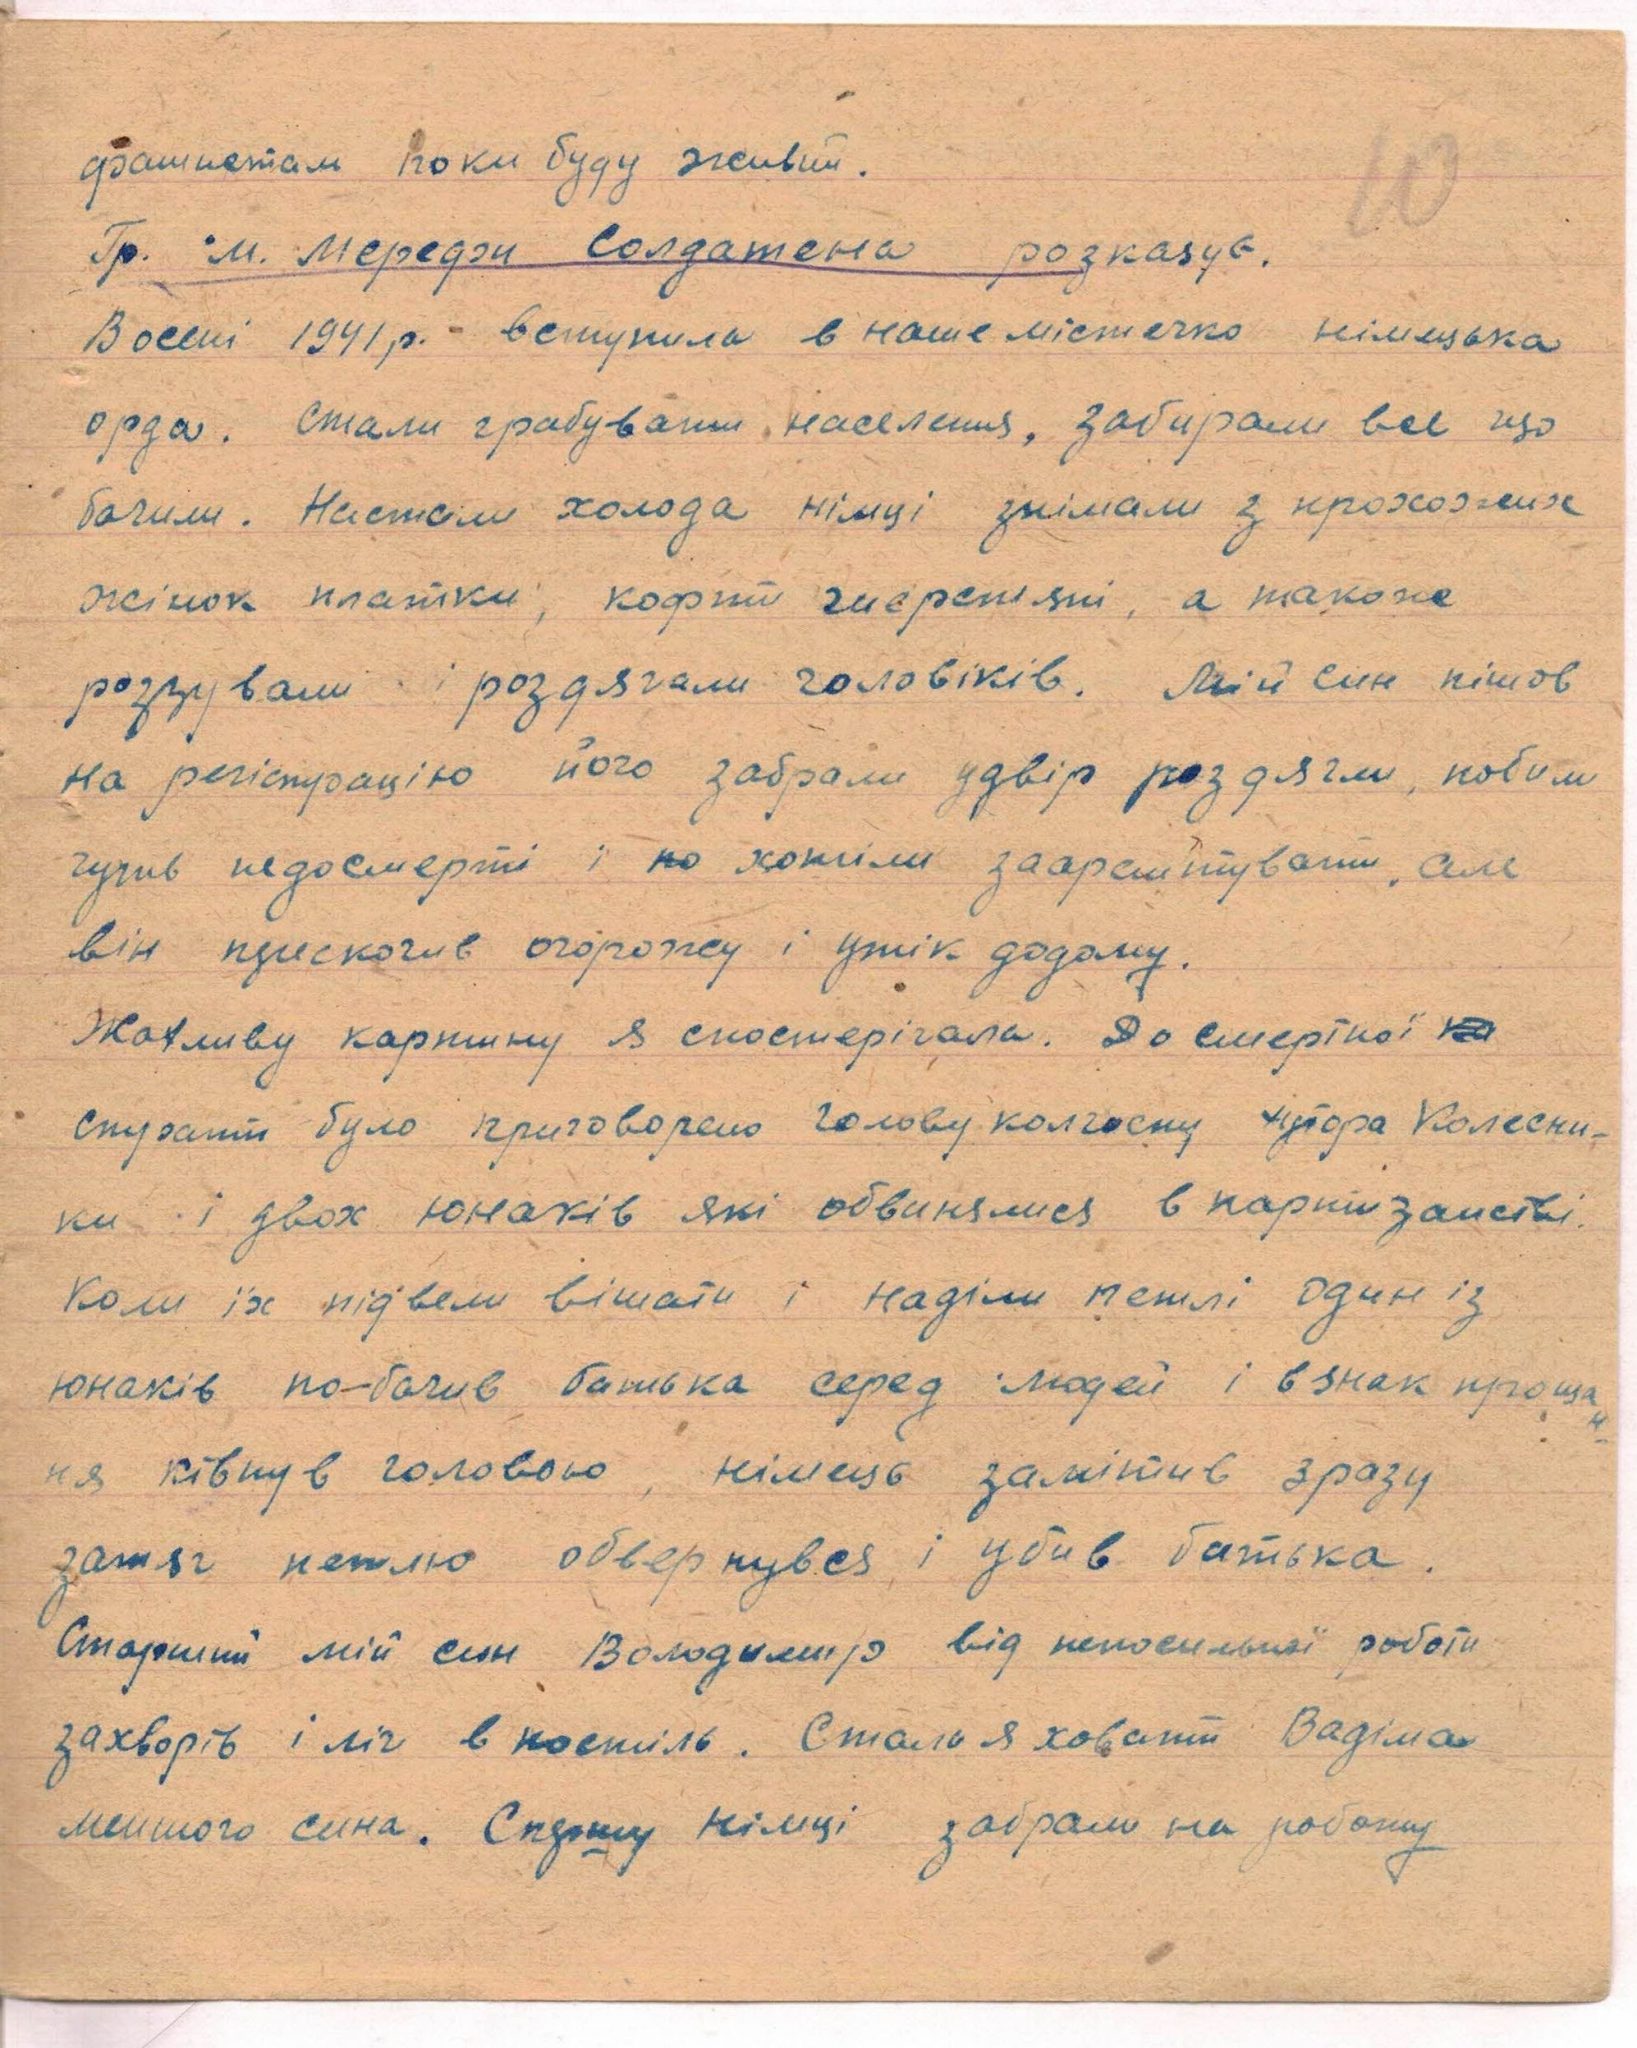 10
фашистам поки буду живий.
Гр. м. Мерефи Солдатена розказує.
Восени 1941 р. вступила в наше містечко німецька
орда. Стали грабувати населення, забирали все що
бачили. Настали холода німці знімали з прохожих
жінок платки, кофти шерстяні, а також
роззували і роздягали чоловіків. Мій син пішов
на регістрацію його забрали у двір роздягли, побили
чуть недосмерті і хотіли заарештувати, але
він прискочив огорожу і утік додому.
Жахливу картину я спостерігала. До смертної
страти було приговорено голову колгоспу хутора Колесни-
ки і двох юнаків які обвинялися в партизанстві.
Коли їх підвели вішати і наділи петлі один із
юнаків по-бачив батька серед людей і в знак прощан-
ня ківнув головою, німець замітив зразу
затяг петлю обвернувся і убив батька.
Старший мій син Володимир від непосильної роботи
захворів і ліг в постіль. Стала я ховати Вадіма
меншого сина. Німці забрали на роботу